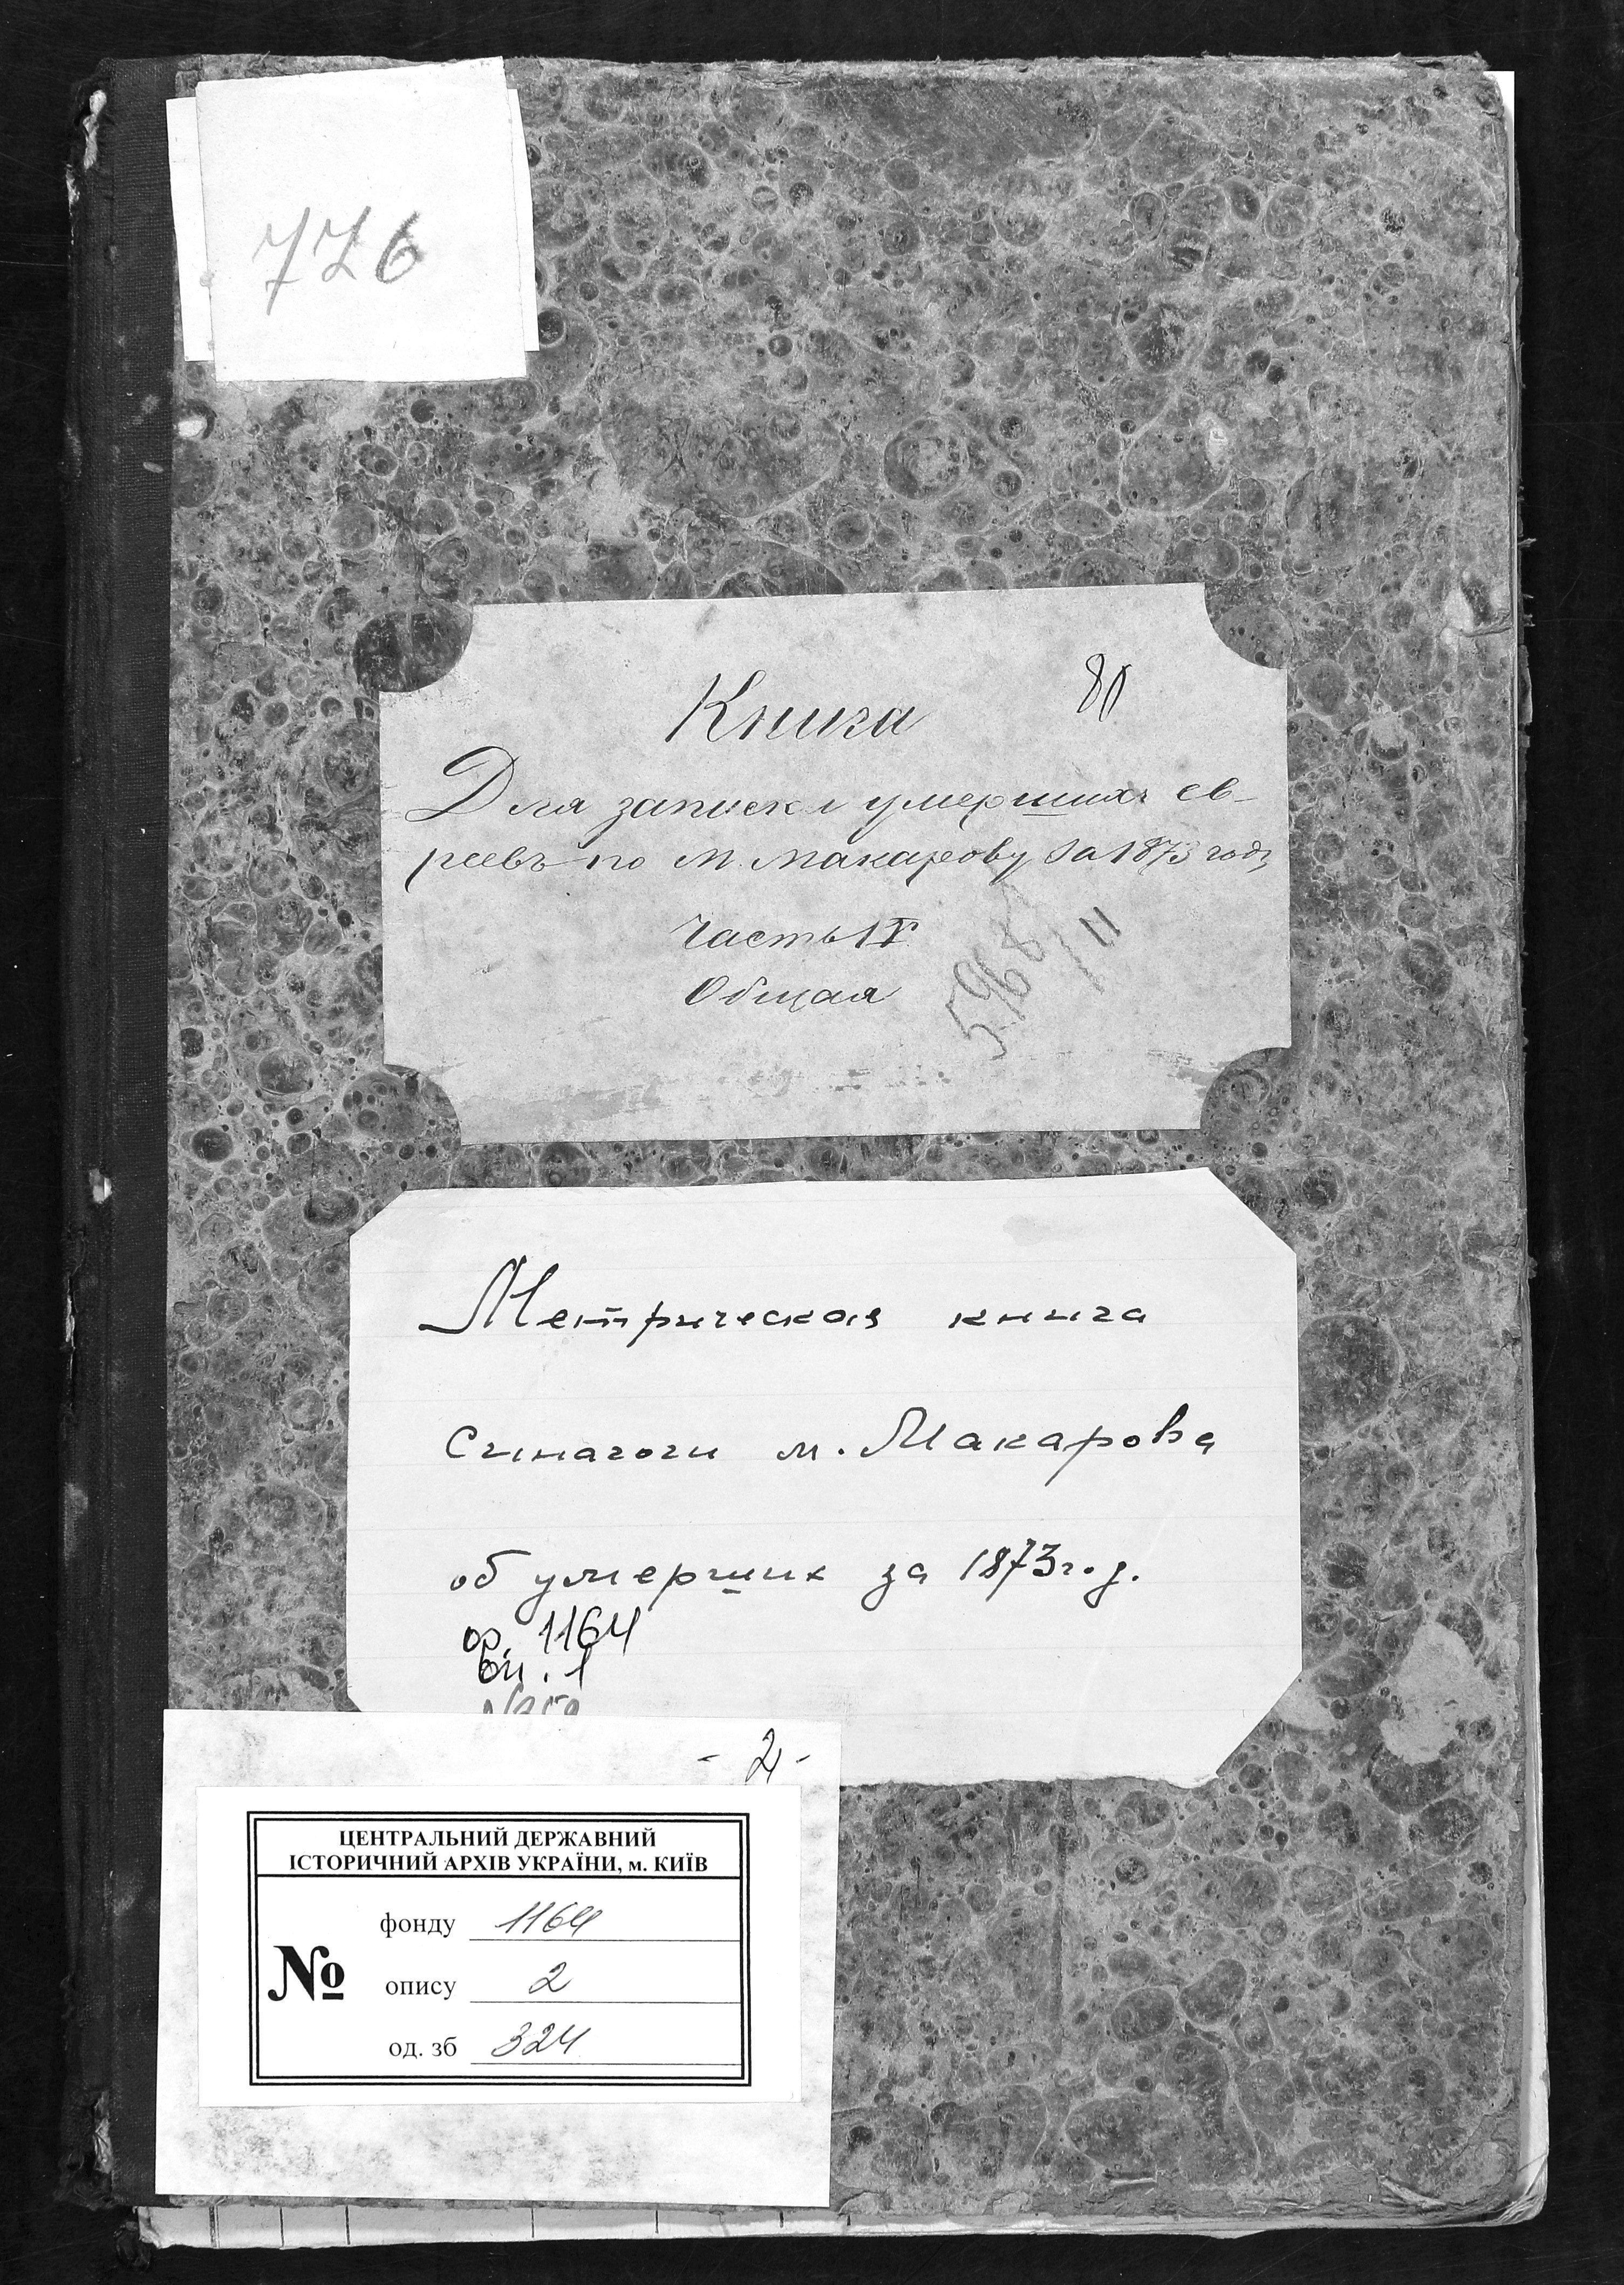 776
Книга
80
Для записки умершихъ ев-
реевъ по м. Макарову за 1873 годъ
Часть IV
Общая
5968
11
Метрическая книга
Синагоги м. Макарова
об умерших за 1873 год.
ф. 1164
оп. 1
- 2 -
ЦЕНТРАЛЬНИЙ ДЕРЖАВНИЙ
ІСТОРИЧНИЙ АРХІВ УКРАЇНИ, м. КИЇВ
фонду 1164
№ опису 2
од. зб 324